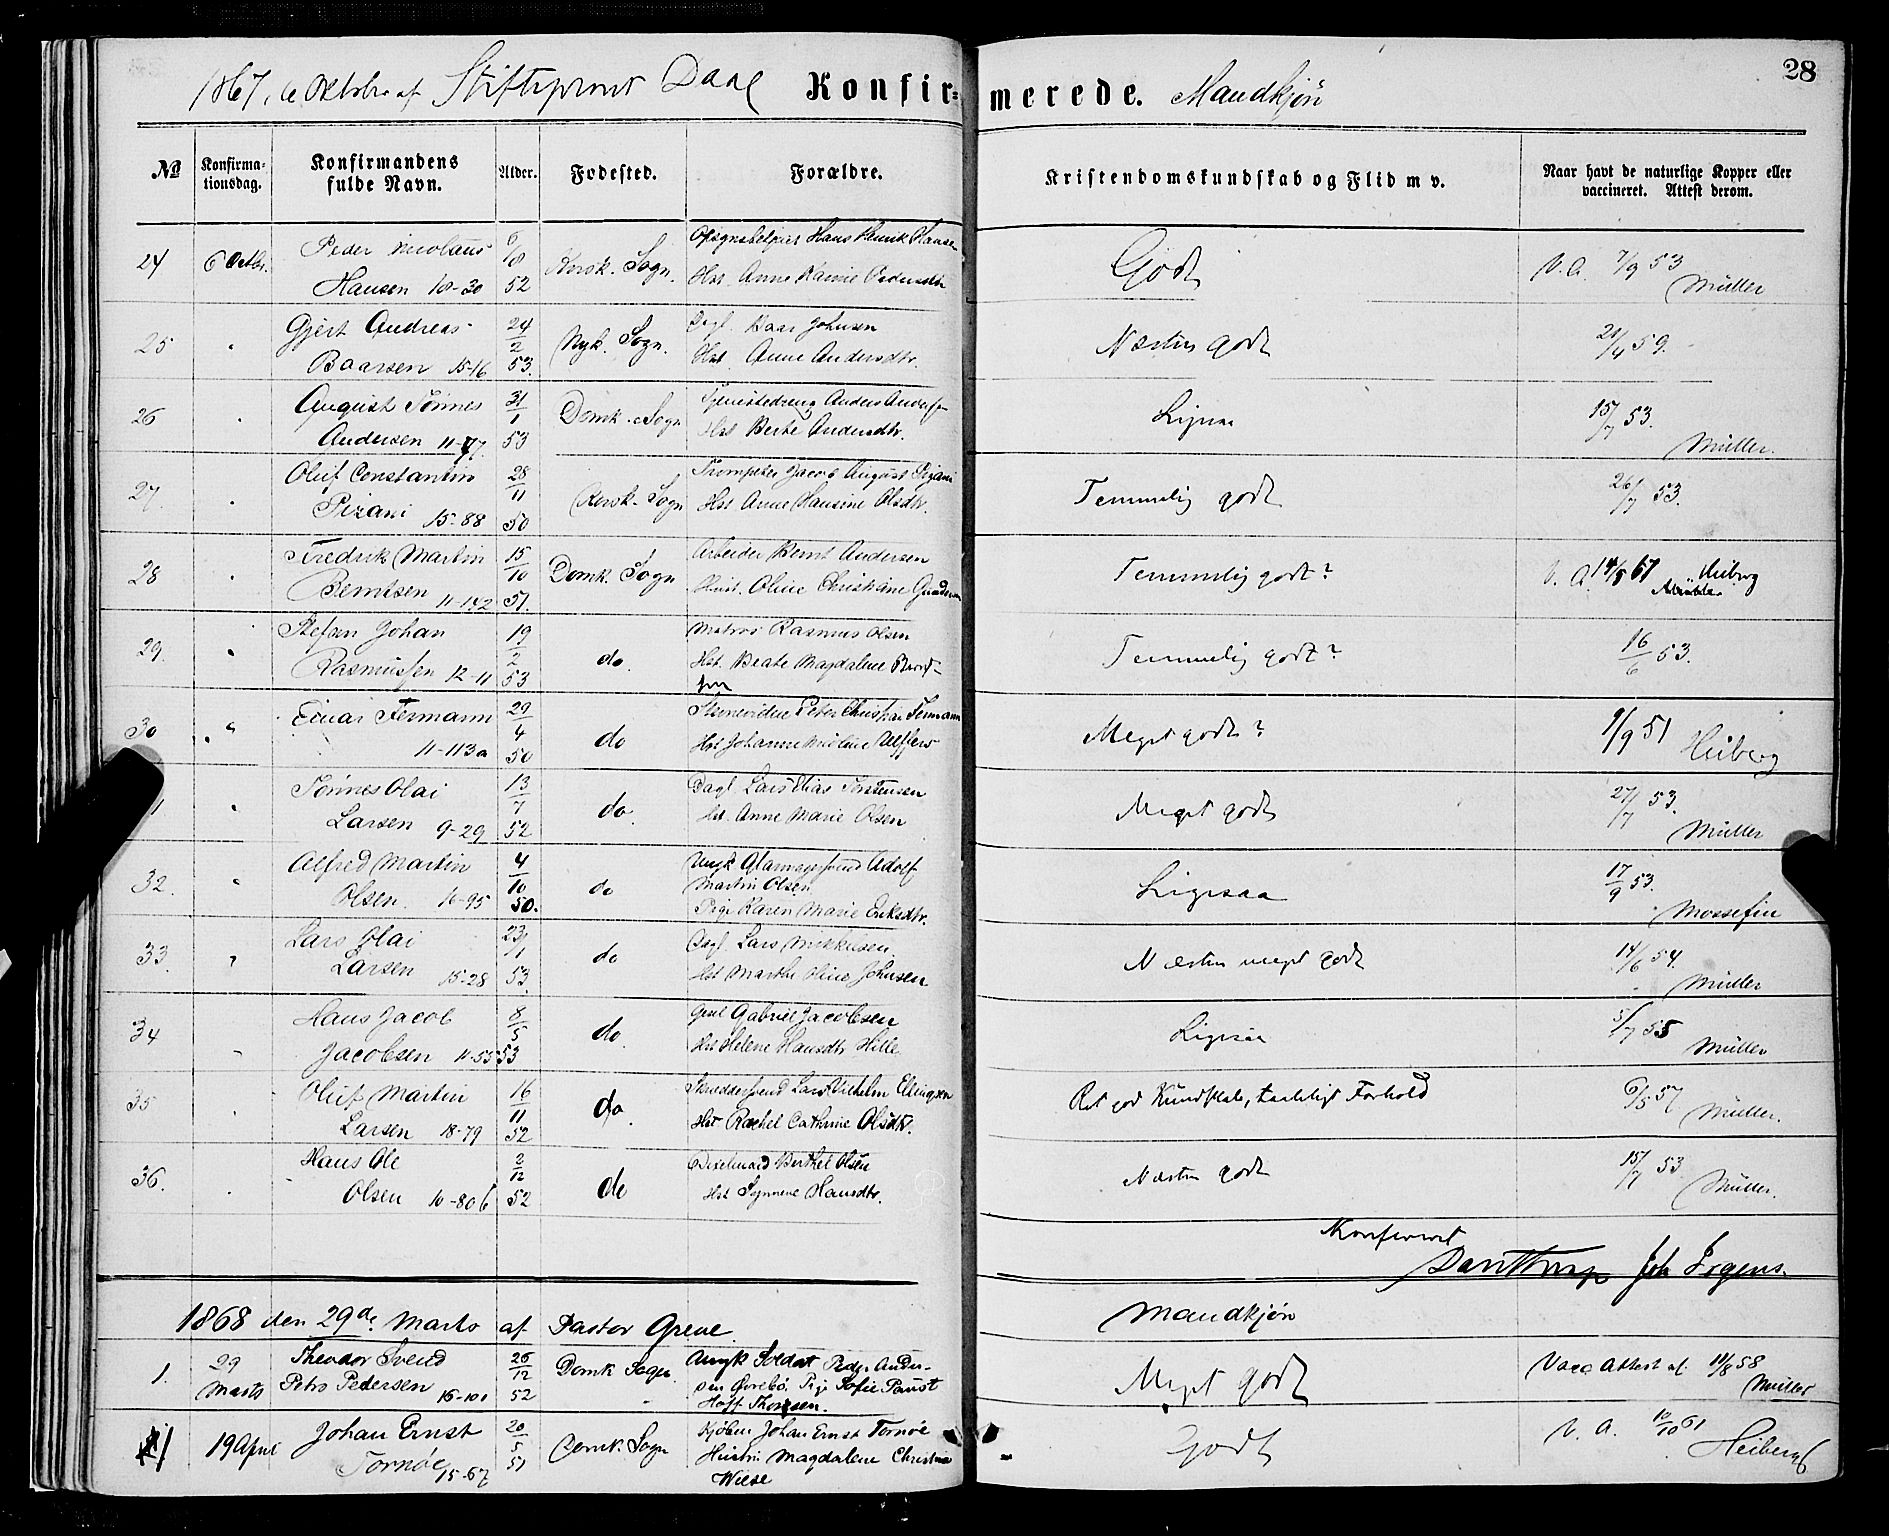 28
1867, 6 Oktobr af Stiftsprovst Daae Konfir=merede. Mandkjön
No Konfirma=tionsdag. Konfirmandens fulde Navn. Alder. Fødested. Forældre. Kristendomskundskab og Flid m v. Naar havt de naturlige Kopper eller vaccineret. Attest derom.
24 6 Octbr. Peder Nicolaus 6/8 Hans Henrik Hansen
Hansen 10-30 52 Sogn. Hst. Anne Godt V. A. 7/9 53 Müller
25 " Gjert Andreas 24/2 Dagl. Baar Johnsen
Baarsen 15-16 53. Nyk. Sogn. Hst. Anne Andersdtr. Næsten godt 21/4 59.
26 " August Tönnes 31/1 Tjenestedreng Anders Andersen
Andersen 11-77 53 Domk. Sogn Hst Berte Andersdtr. Ligesaa 15/7 53. Müller.
27. " Oluf Constantin 28/11 Trompeter Jacob August Pizani
Pizani 15-88 50 Sogn Hst Anne Hansine Olsdtr. Temmelig godt 26/7 53.
28 " Fredrik Martin 15/10 Arbeider Bernt Andersen
Berntsen 11-142 51. Domk. Sogn Hust. Oline Christiane Temmelig godt? V. A. 14/5 67 Heiberg
29. " Stefen Johan 19/2 Matros Rasmus Olsen
Rasmussen 12-11 53 do. Hst. Beate Magdalene Temmelig godt? 16/6 53.
30 " Einar Fermann 29/4 Peter Christian Fermann
11-113a 50 do Hst Johanne Meget godt? 9/9 51 Heiberg
" Tönnes Olai 13/7 Dagl. Lars Elias Torstensen
Larsen 9-29 52 do. Hst. Anne Marie Olsen Meget godt 27/7 53. Müller
32. " Alfred Martin 4/10 Ungk Adolf
Martin Olsen
Olsen. 16-95 50. do Pige Karen Marie Eriksdtr. Ligesaa 17/9 53.
33. " Lars Olai 23/1 Dagl. Lars
Larsen 15-28 53. do Hst Marthe Oline Johnsen Næsten meget godt 14/6 54. Müller
34 " Hans Jacob 8/5 Gabriel Jacobsen
Jacobsen 11-55 53 do. Hst Helene Hansdtr Hille. Ligesaa 5/7 55 Müller
35 Oluf Martin 16/11 Skræddersvend Lars Vilhelm Ellingsen
Larsen 18-79 52 do. Hst Rachel Cathrine Olsdtr. Ret god Kundskab, Forhold 6/5 57 Müller.
36. " Hans Ole 2/12 Berthel Olsen
Olsen 10-80b 52 do Hst Synneve Hansdtr. Næsten godt 15/7 53 Müller.
Konfereret
1868 den 29de Marts af Pastor Greve. Mandkjön
1. 29 Marts Theodor Svend 26/12 Domk Sogn Ungk Soldat Peder Ander-
Petro Pedersen 15-101 52 sen Övrebö. Pige Sofie Paust
Hoff Thorsen. Meget godt Vacc Attest af 11/8 58 Müller
1 19 April Johan Ernst 20/5 Domk. Sogn Kjöbm Johan Ernst Tornöe
Tornöe 15-67 51 Hustru Magdalene Christine
Wiese Godt V. A. 10/10 61 Heiberg